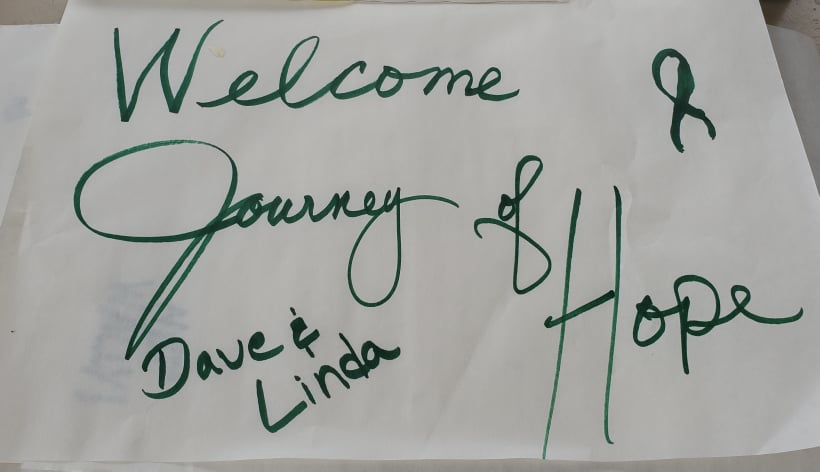 Welcome
Journey of Hope
Dave &
Linda